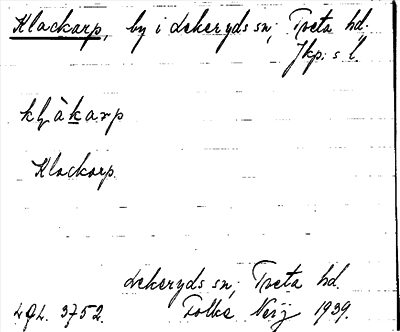 Klackarp, by i Lekeryds sn; Tveta hd.
Jkp:s l.
Klackarp.
Lekeryds sn; Tveta hd.
3752. Folke 1939.